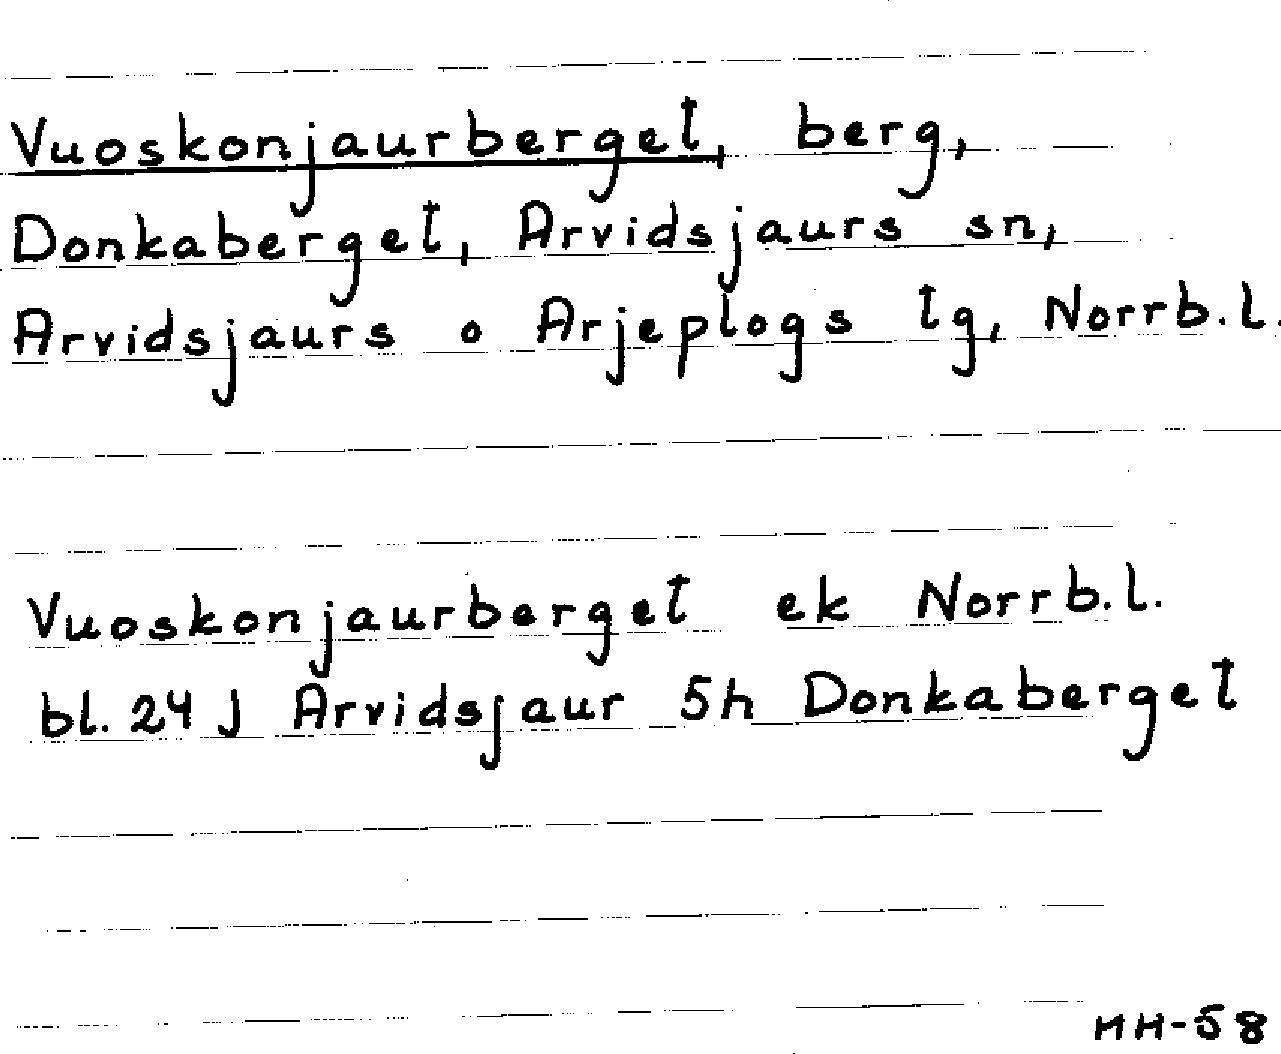 Vuoskonjaurberget, berg,
Donkaberget, Arvidsjaurs sn,
Arvidsjaurs o Arjeplogs tg, Norrb.l.
Vuoskonjaurberget ek Norrb.l.
bl. 24 J Arvidsjaur 5h Donkaberget
MH-58